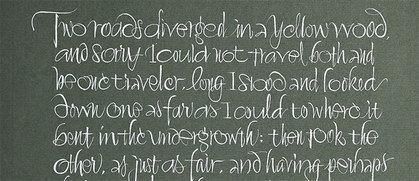 Two roads diverged in a yellow wood,
and sorry I could not travel both and
be one traveler, long I stood and looked
down one as far as I could to where it
bent in the undergrowth: then took the
other, as just as fair, and having perhaps